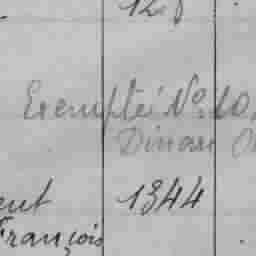 Exempté No. 10,
Dinan
ent 1344
François